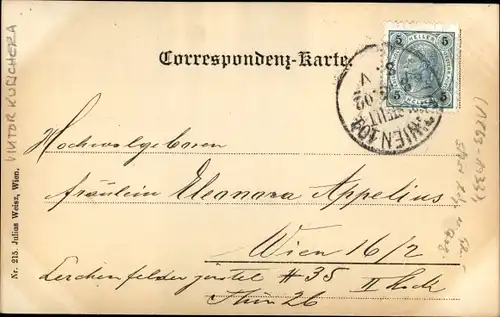 Correspondenz-Karte.
5 HELLER 5
5 HELLER 5
WIEN 104
Hochwolgeboren
Fräulein Eleonora Appelius
Wien 16/2
Lerchenfeldergürtel #35 II Stock
Thür 26
Nr. 215. Julius Weisz, Wien.
VIKTOR KUTSCHERA